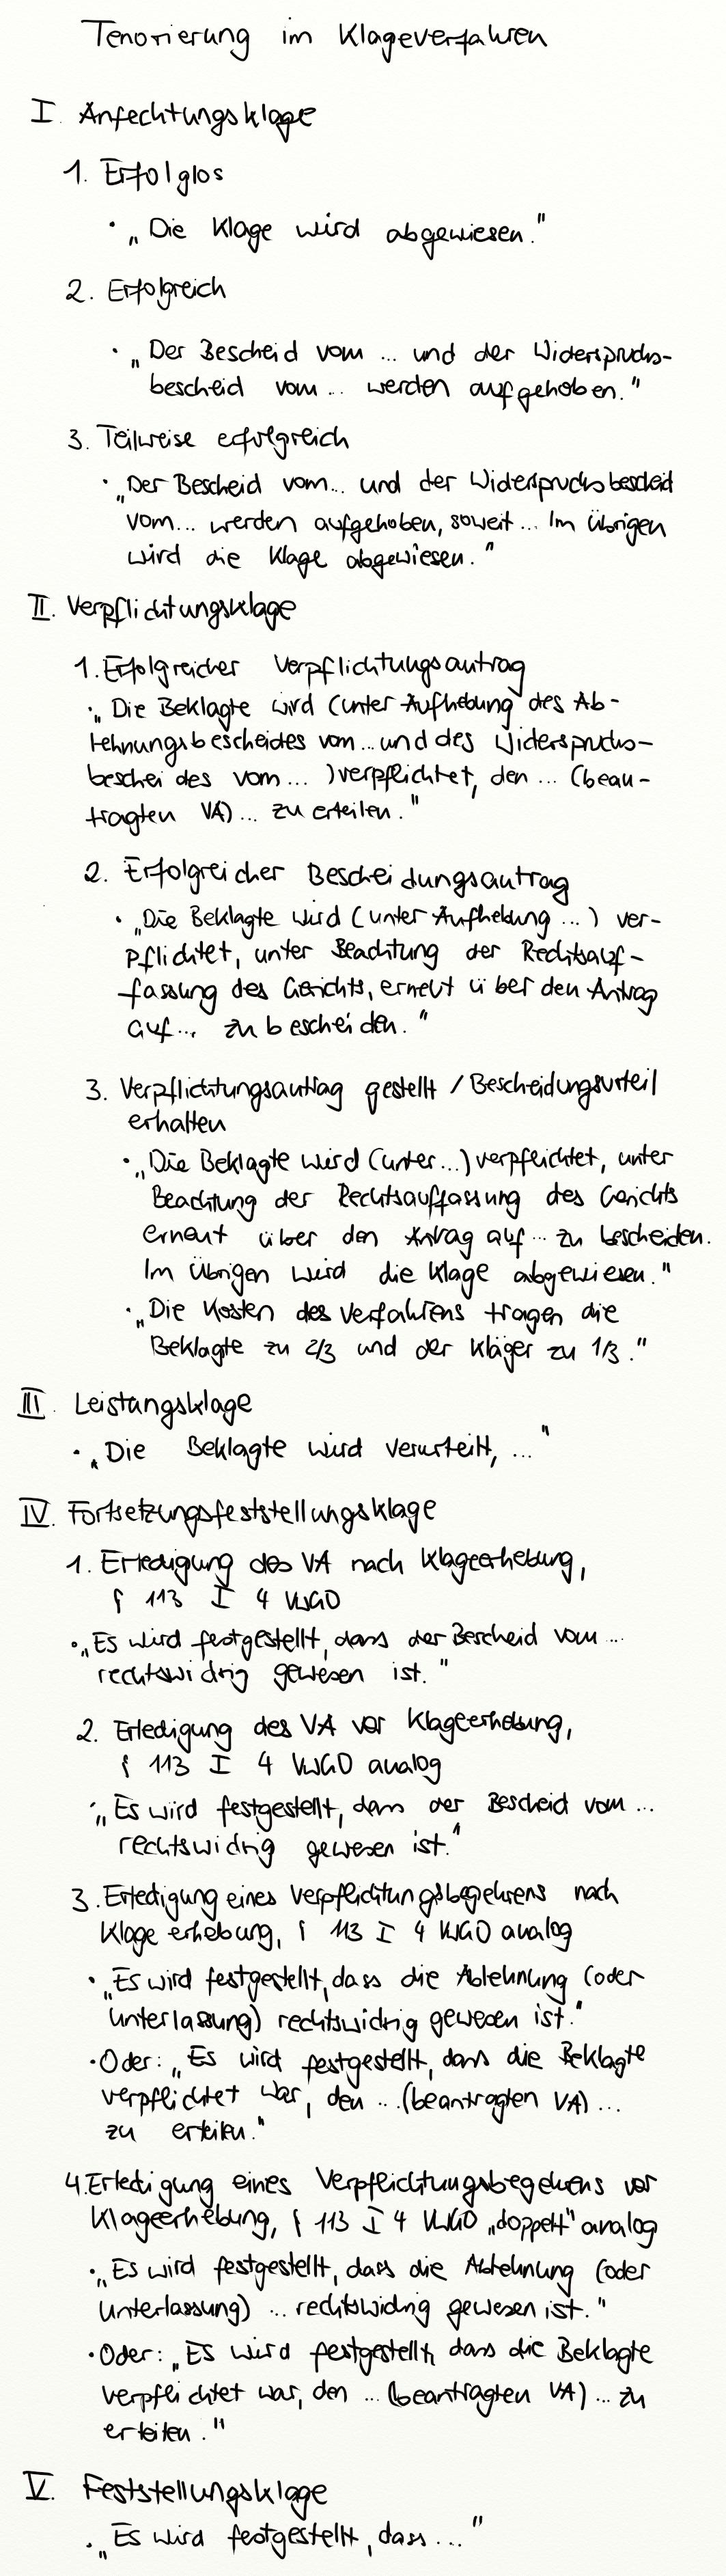 Tenorierung im Klageverfahren
I. Anfechtungsklage
1. Erfolglos
• „Die Klage wird abgewiesen."
2. Erfolgreich
• „Der Bescheid vom ... und der Widerspruchs-
bescheid vom ... werden aufgehoben."
3. Teilweise erfolgreich
• „Der Bescheid vom ... und der Widerspruchsbescheid
vom ... werden aufgehoben, soweit ... Im Übrigen
wird die Klage abgewiesen."
II. Verpflichtungsklage
1. Erfolgreicher Verpflichtungsantrag
• „Die Beklagte wird (unter Aufhebung des Ab-
lehnungsbescheides vom ... und des Widerspruchs-
bescheides vom ... ) verpflichtet, den ... (beau-
tragten VA) ... zu erteilen."
2. Erfolgreicher Bescheidungsantrag
• „Die Beklagte wird (unter Aufhebung ...) ver-
pflichtet, unter Beachtung der Rechtsauf-
fassung des Gerichts, erneut über den Antrag
auf ... zu bescheiden."
3. Verpflichtungsantrag gestellt / Bescheidungsurteil
erhalten
• „Die Beklagte wird (unter ...) verpflichtet, unter
Beachtung der Rechtsauffassung des Gerichts
erneut über den Antrag auf ... zu bescheiden.
Im Übrigen wird die Klage abgewiesen."
• „Die Kosten des Verfahrens tragen die
Beklagte zu 2/3 und der Kläger zu 1/3."
III. Leistungsklage
• „Die Beklagte wird verurteilt, ..."
IV. Fortsetzungsfeststellungsklage
1. Erledigung des VA nach Klageerhebung,
§ 113 I 4 VwGO
• „Es wird festgestellt, dass der Bescheid vom ...
rechtswidrig gewesen ist."
2. Erledigung des VA vor Klageerhebung,
§ 113 I 4 VwGO analog
• „Es wird festgestellt, dass der Bescheid vom ...
rechtswidrig gewesen ist."
3. Erledigung eines Verpflichtungsbegehrens nach
Klageerhebung, § 113 I 4 VwGO analog
• „Es wird festgestellt, dass die Ablehnung (oder
Unterlassung) rechtswidrig gewesen ist."
• Oder: „Es wird festgestellt, dass die Beklagte
verpflichtet war, den ... (beantragten VA) ...
zu erteilen."
4. Erledigung eines Verpflichtungsbegehrens vor
Klageerhebung, § 113 I 4 VwGO „doppelt" analog
• „Es wird festgestellt, dass die Ablehnung (oder
Unterlassung) ... rechtswidrig gewesen ist."
• Oder: „Es wird festgestellt, dass die Beklagte
verpflichtet war, den ... (beantragten VA) ... zu
erteilen."
V. Feststellungsklage
• „Es wird festgestellt, dass ..."